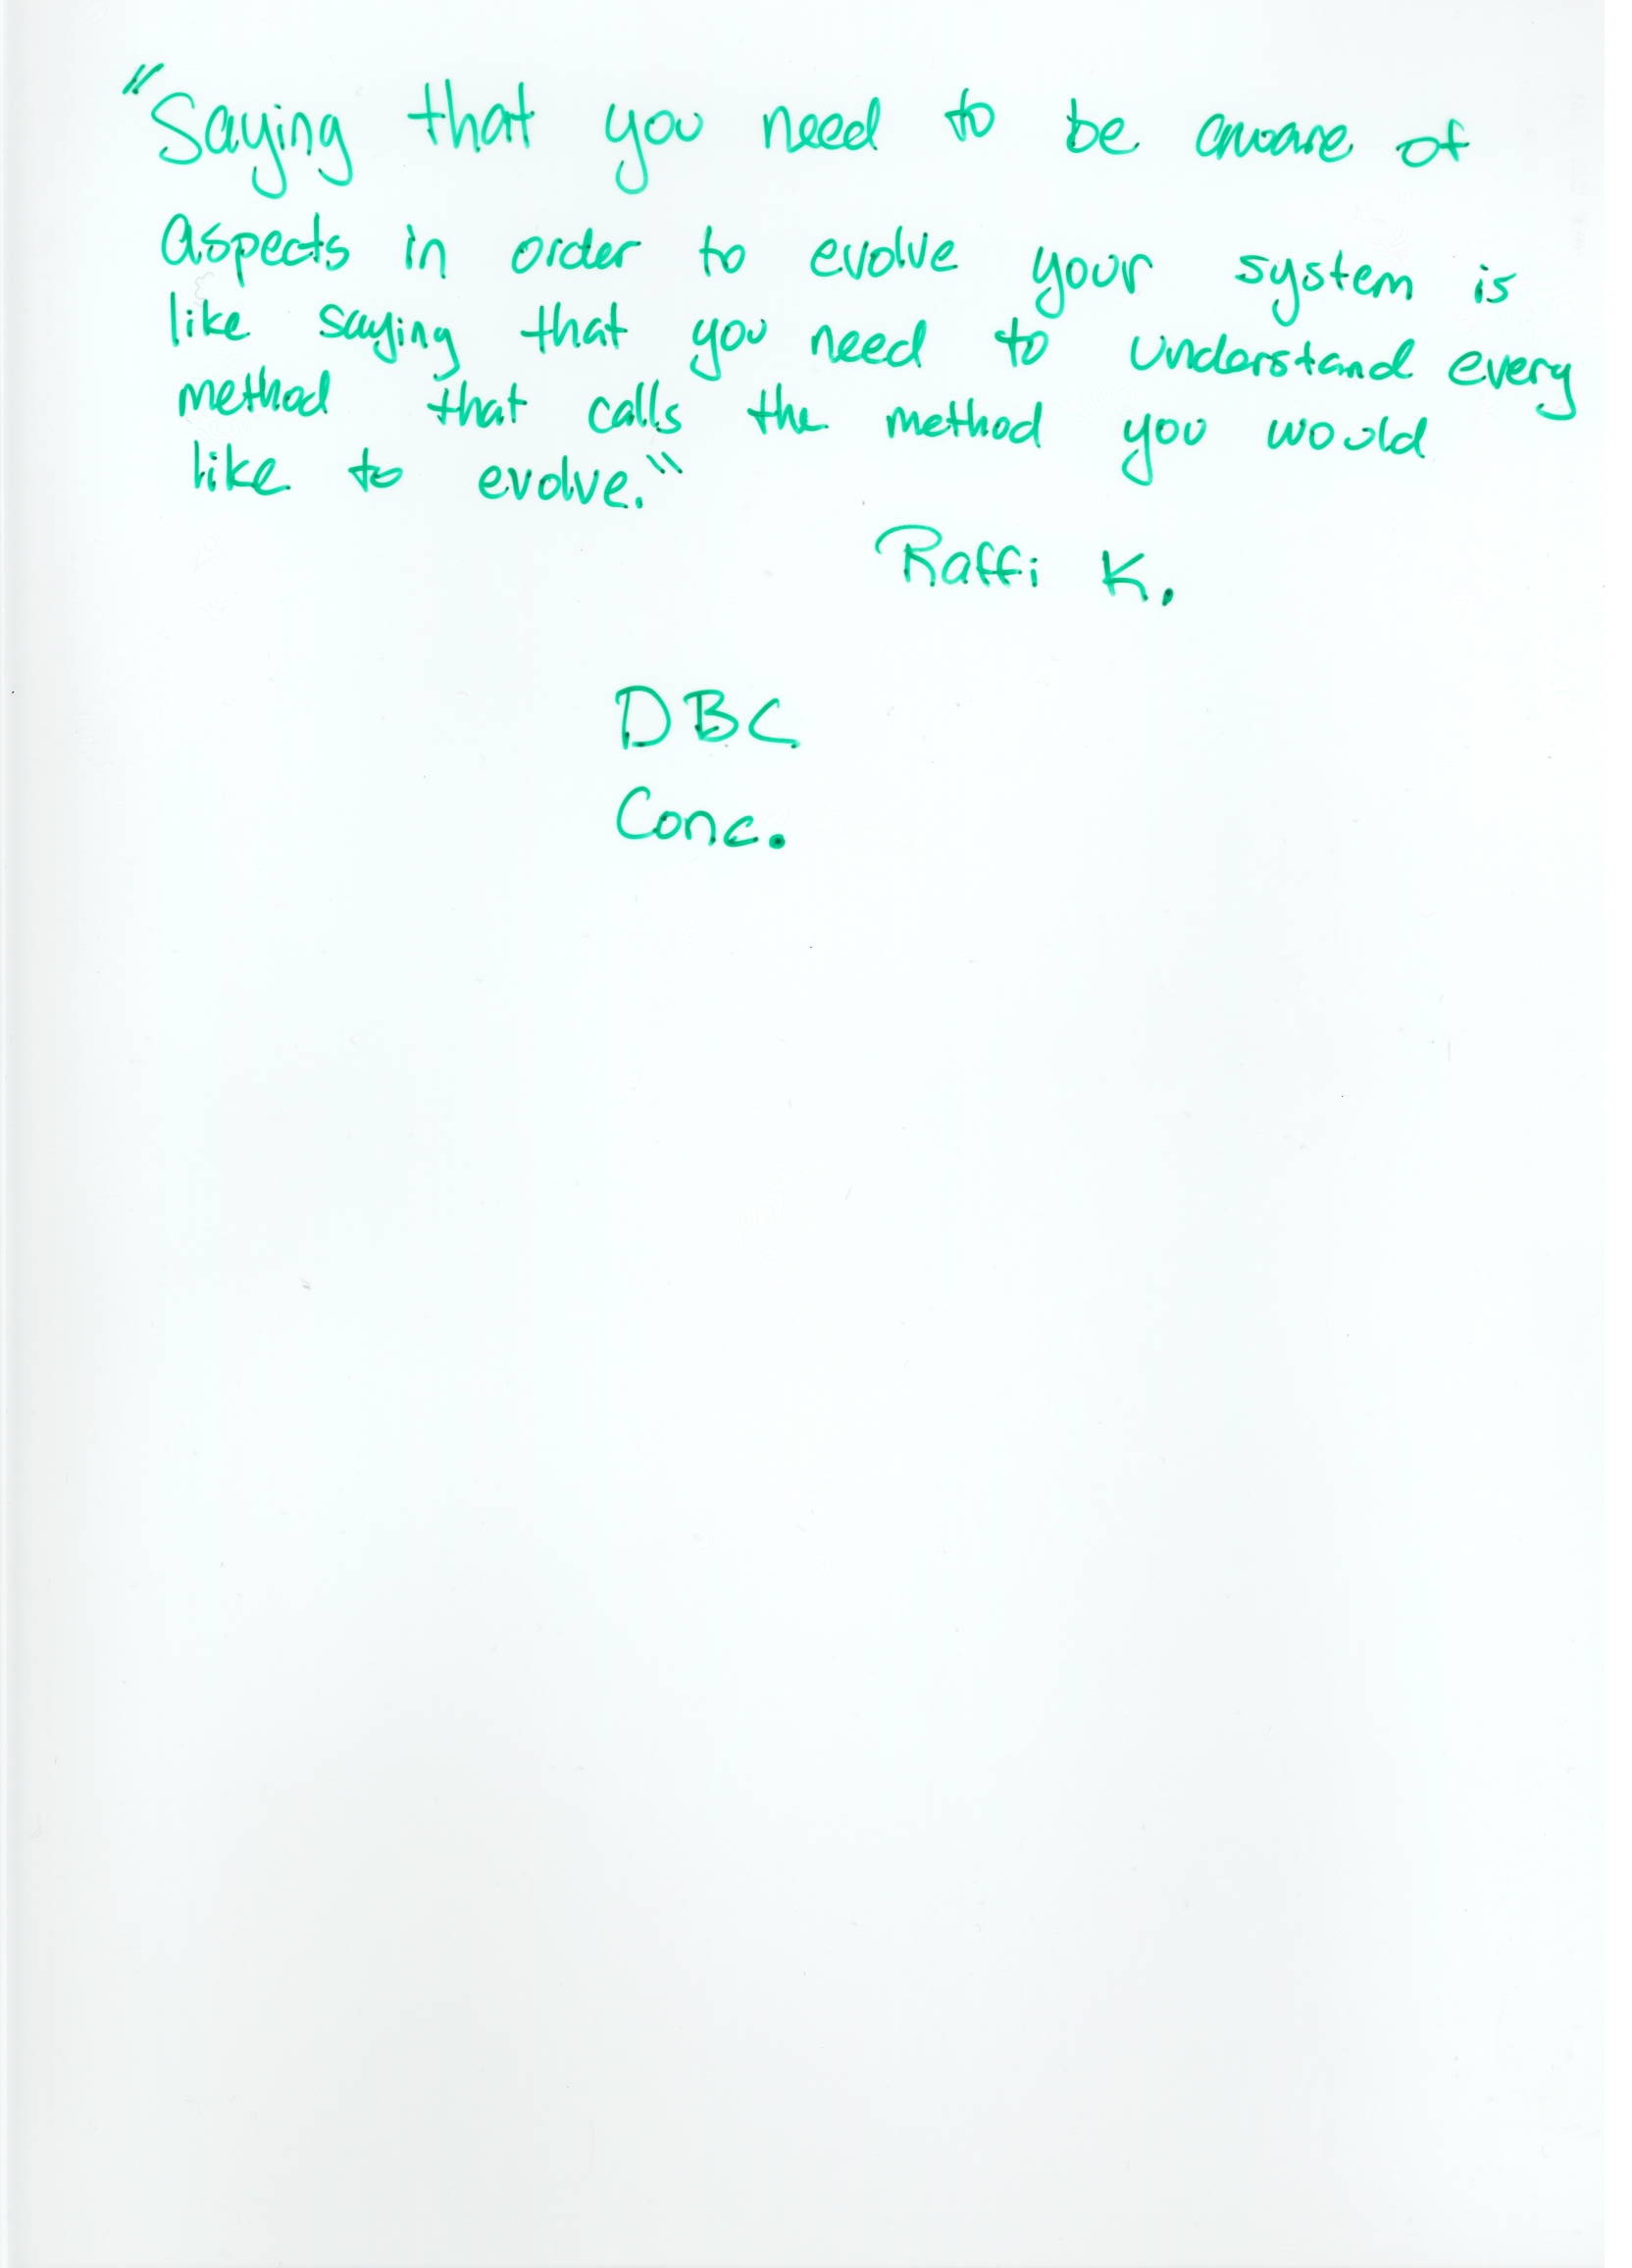 "Saying that you need to be aware of
aspects in order to evolve your system is
like saying that you need to understand every
method that calls the method you would
like to evolve."
Raffi K.
DBC
Conc.